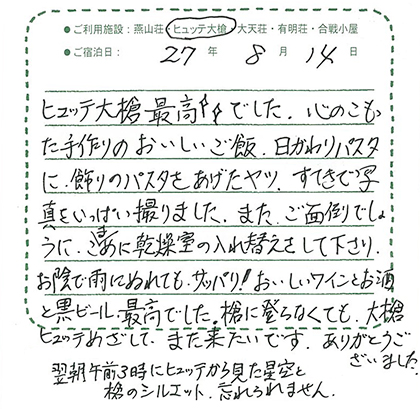 ●ご利用施設：燕山荘・ヒュッテ大槍・大天荘・有明荘・合戦小屋
●ご宿泊日： 27 年 8 月 14 日
ヒュッテ大槍最高!!でした。心のこもっ
た手作りのおいしいご飯。日かわりパスタ
に、飾りのパスタをあげたヤツ。すてきで写
真をいっぱい撮りました。また、ご面倒でしょ
うに、に乾燥室の入れ替えをして下さり、
お陰で雨にぬれても、サッパリ！おいしいワインとお酒
と黒ビール最高でした。槍に登らなくても、大槍
ヒュッテめざして、また来たいです。ありがとうご
ざいました。
翌朝午前3時にヒュッテから見た星空と
槍のシルエット、忘れられません。